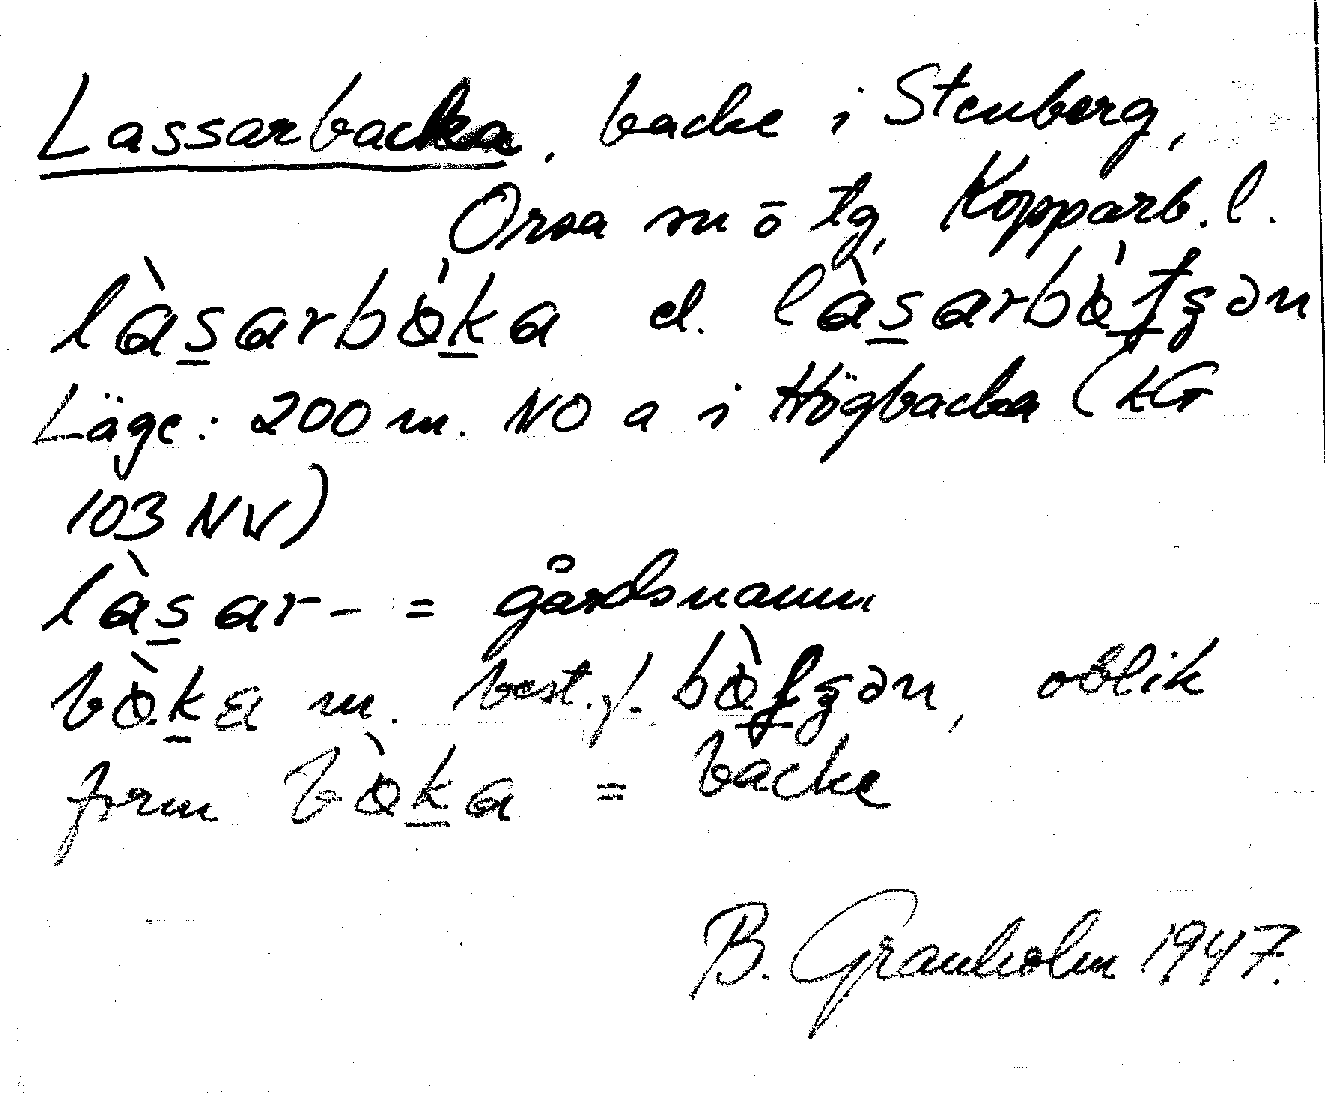 Lassarbacka, backe i Stenberg,
Orsa sn ō tg, Kopparb. l.
là̀s̲arbò̀k̲a el. làs̲arbò
Läge: 200 m. NO a i Högbacka (EG
103 NV)
làs̲ar- = gårdsnamn
bòk̲a m. best. f. oblik
form bòk̲a = backe
B. Granholm 1947.